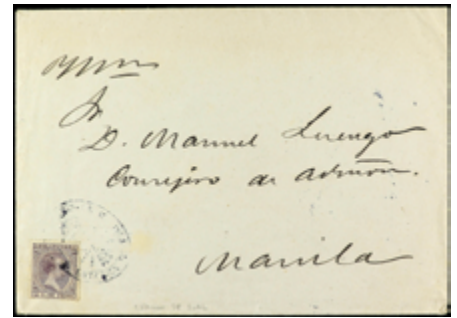 Sr
D. Manuel Luengo
Consejero de admón.
Manila